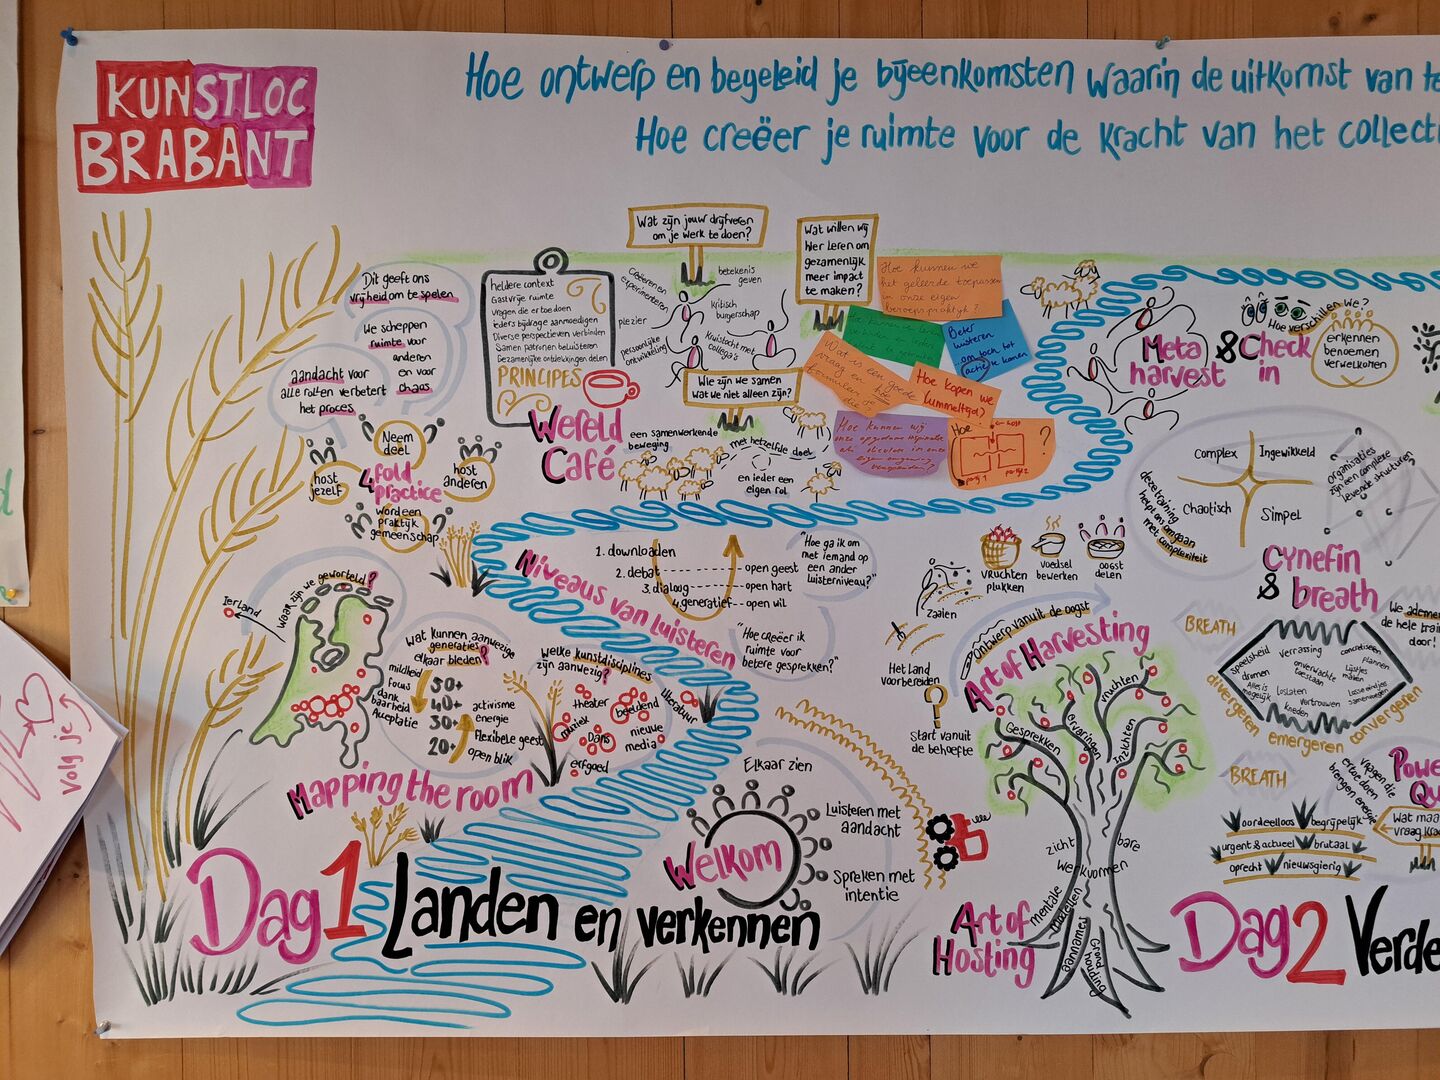 KUNSTLOC
BRABANT
Hoe ontwerp en begeleid je bijeenkomsten waarin de uitkomst van te
Hoe creëer je ruimte voor de kracht van het collect
Dit geeft ons
vrijheid om te spelen
We scheppen
ruimte voor
anderen
en voor
chaos
aandacht voor
alle rollen verbetert
het proces
Neem
deel
host
jezelf
4fold
practice
host
anderen
word een
praktijk
gemeenschap
heldere context
Gastvrije ruimte
vragen die ertoe doen
ieders bijdrage aanmoedigen
Diverse perspectieven verbinden
Samen patronen beluisteren
Gezamenlijke ontdekkingen delen
PRINCIPES
Wereld
Café
Wat zijn jouw drijfveren
om je werk te doen?
Creëren en
experimenteren
betekenis
geven
plezier
kritisch
burgerschap
persoonlijke
ontwikkeling
Kruistocht met
collega's
Wie zijn we samen
wat we niet alleen zijn?
een samenwerkende
beweging
met hetzelfde doel
en ieder een
eigen rol
Wat willen wij
hier leren om
gezamenlijk
meer impact
te maken?
Hoe kunnen we
het geleerde toepassen
in onze eigen
beroepspraktijk?
Beter
luisteren
om toch tot
actie te komen
Wat is een goede
vraag en hoe
formuleer je
die?
Hoe kopen we
lummeltijd?
Hoe kunnen wij
Hoe:
?
Meta
harvest
& Check
in
Hoe verschillen we?
erkennen
benoemen
verwelkomen
Niveaus van luisteren
1. downloaden
2. debat
3. dialoog
4. generatief
open geest
open hart
open wil
"Hoe ga ik om
met iemand op
een ander
luisterniveau?"
"Hoe creëer ik
ruimte voor
betere gesprekken?"
Ierland
Waar zijn we geworteld?
Wat kunnen aanwezige
generaties
elkaar bieden?
mildheid
focus
dankbaarheid
Acceptatie
50+
40+
30+
20+
activisme
energie
Flexibele geest
open blik
welke kunstdisciplines
zijn aanwezig?
theater
beeldend
literatuur
muziek
Dans
nieuwe
media
erfgoed
Mapping the room
Welkom
Elkaar zien
Luisteren met
aandacht
Spreken met
intentie
Dag1 Landen en verkennen
vruchten
plukken
voedsel
bewerken
oogst
delen
zaaien
Het Land
voorbereiden
Start vanuit
de behoefte
Ontwerp vanuit de oogst
Art of Harvesting
Gesprekken
Ervaringen
vruchten
Inzichten
zicht
bare
werkvormen
mentale
modellen
aannames
Grond
houding
Art of
Hosting
Complex
Ingewikkeld
Chaotisch
Simpel
deze training
helpt ons omgaan
met complexiteit
organisaties
zijn een complexe
levende structuren
Cynefin
& breath
BREATH
We adem
de hele trai
door!
speelsheid
dromen
Alles is
mogelijk
verrassing
onverwachte
toestaan
loslaten
vertrouwen
kneden
concretiseren
plannen
Lijstjes
maken
Losse eindjes
samenvoegen
divergeren
emergeren
convergeren
BREATH
vragen die
ertoe doen
brengen energie
Powe
Qu
Wat maa
vraag kra
oordeelloos
begrijpelijk
urgent & actueel
brutaal
oprecht
nieuwsgierig
Dag2 Verde
Volg je